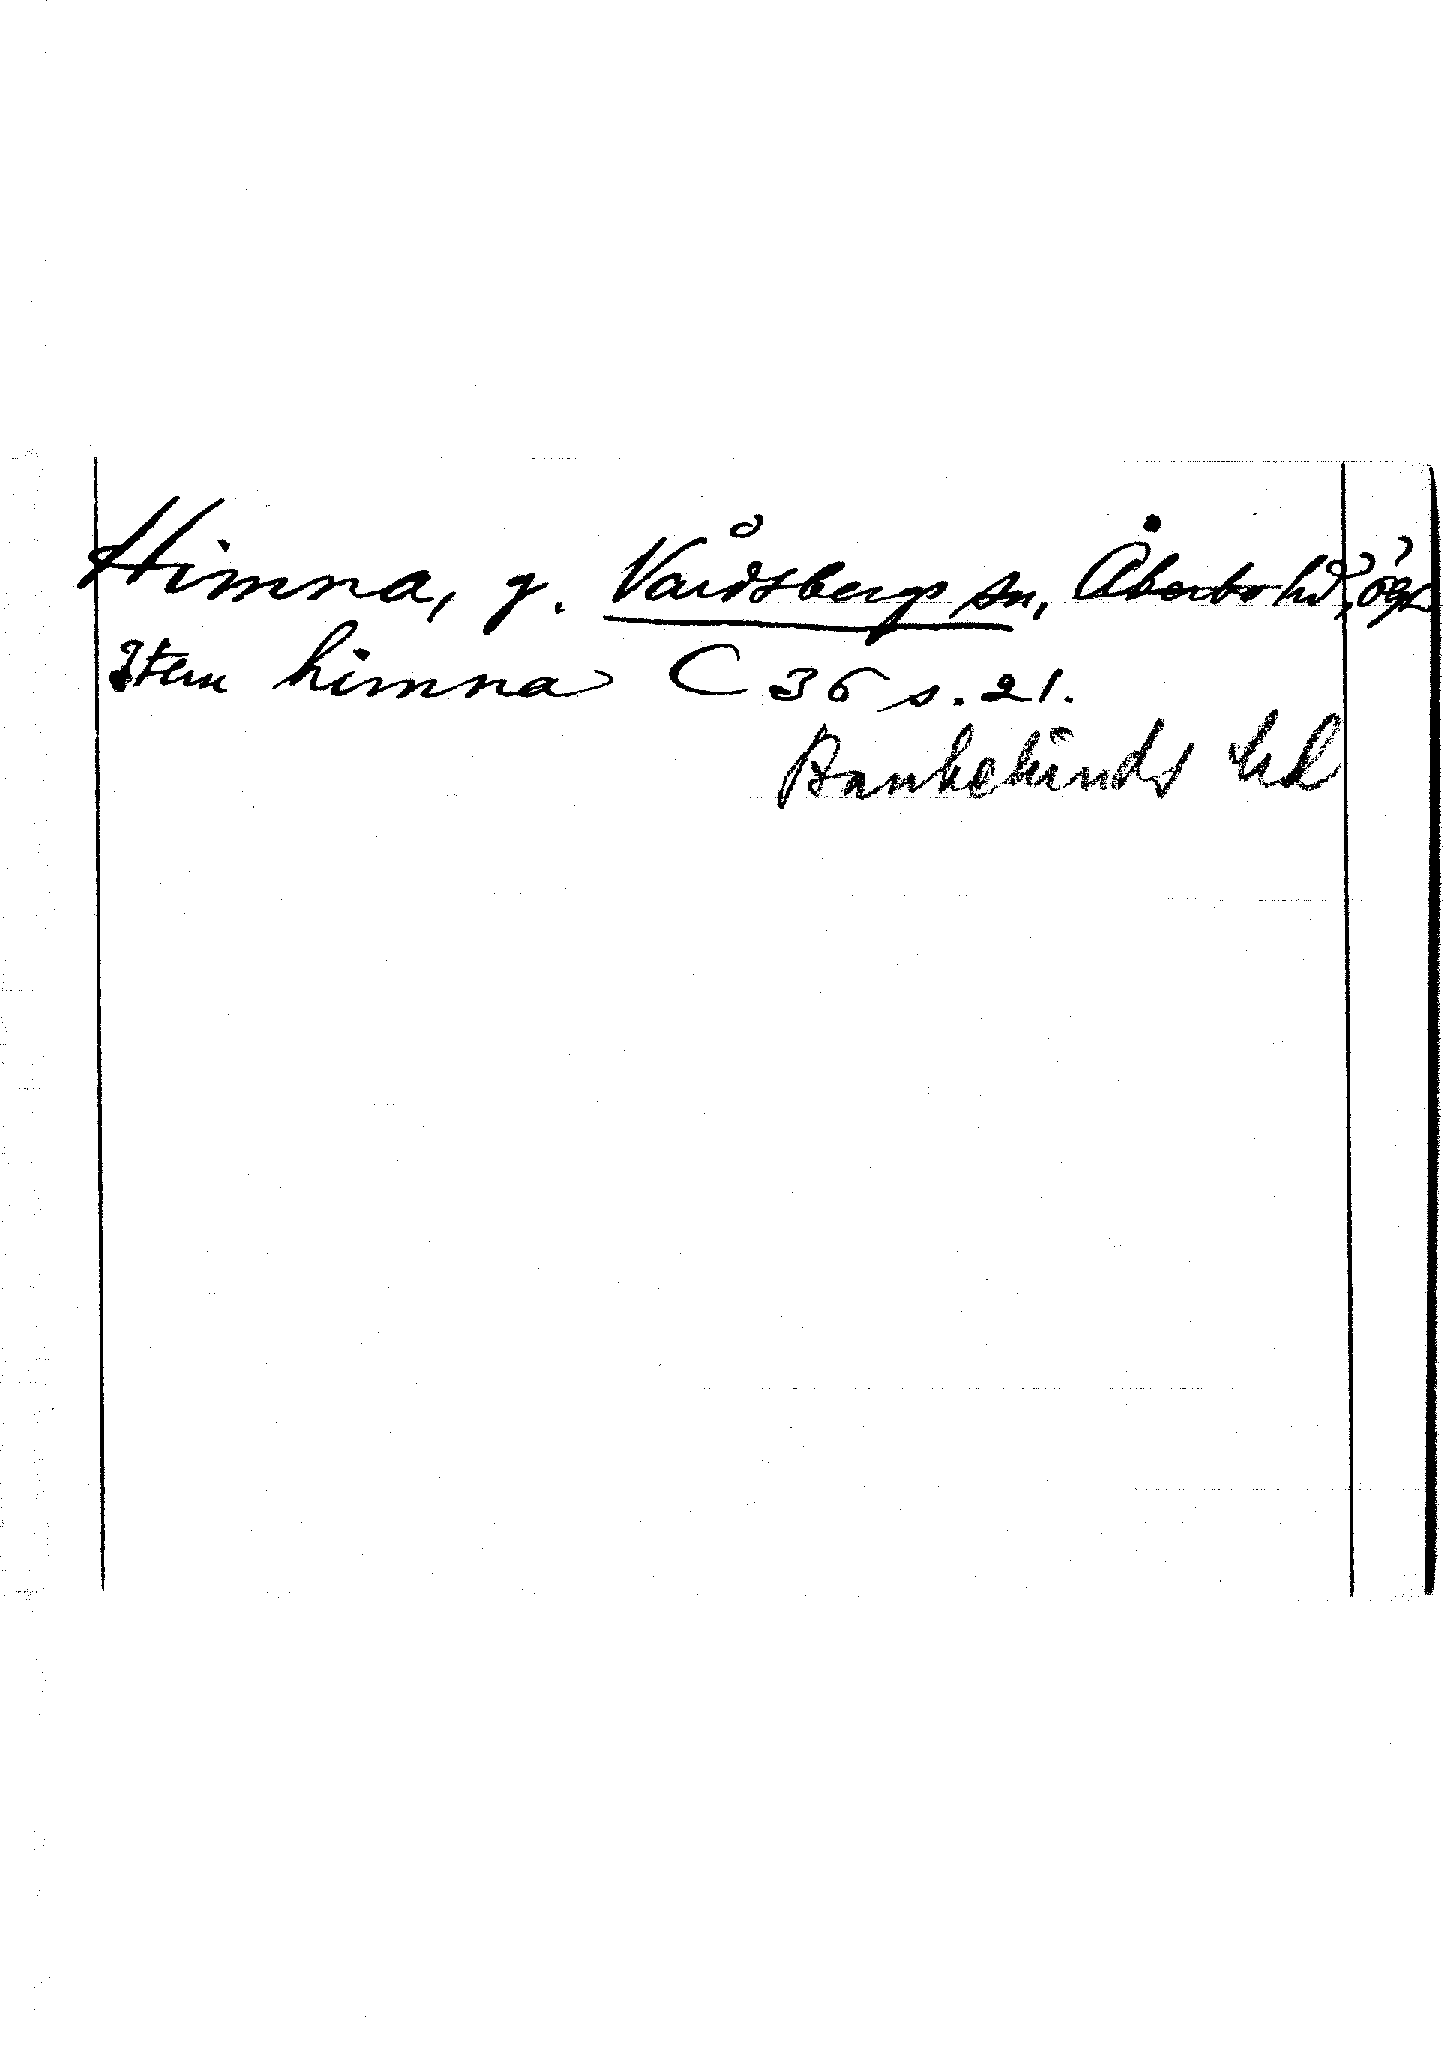 Himna, g. Vårdsbergs sn, Åkerbo hd, Ögl.
Item himna C 36 s. 21.
Bankekinds hd